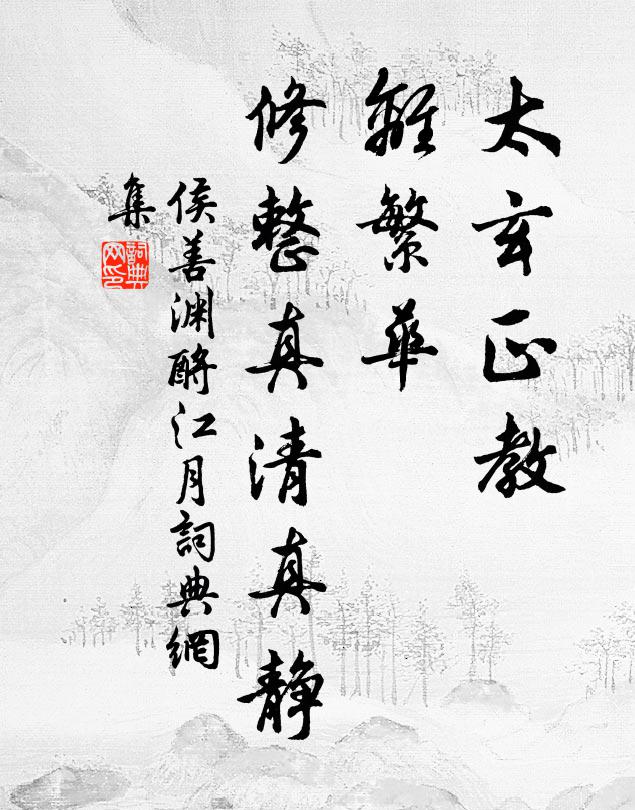 太玄正教
離繁華
修整真清真静
侯善渊酹江月詞典網
集
詞典
网印